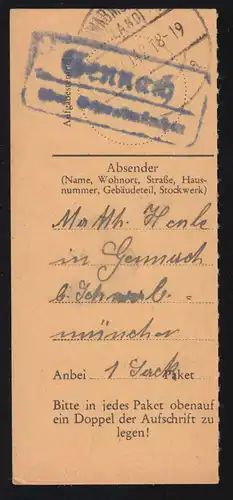 18-19
Gennach
über Schwabmünchen
Aufgabestempel
Absender
(Name, Wohnort, Straße, Haus-
nummer, Gebäudeteil, Stockwerk)
Matth. Henle
in Gennach
b. Schwab-
münchen
Anbei 1 Sack Paket
Bitte in jedes Paket obenauf
ein Doppel der Aufschrift zu
legen!